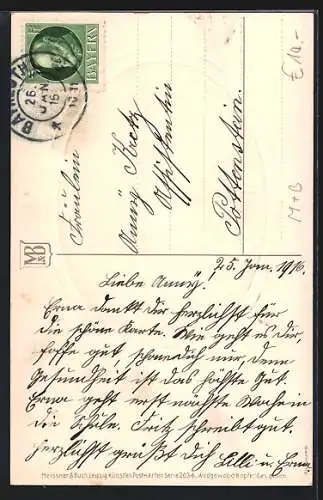 BAYERN
BAYREUTH
26. JAN 16
£ 10.-
M+B
Fräulein
Anny Kretz
Assistentin
Pottenstein.
M&B
25. Jan. 1916.
Liebe Anny.
Erna dankt dir herzlichst für
die schöne Karte. Wie geht es dir,
hoffe gut, schone dich nur, denn
Gesundheit ist das höchste Gut.
Erna geht erst nächste Woche in
die Schule. Fritz schreibt gut.
Herzlichst grüßt dich Lilli u. Erna.
Meissner & Buch, Leipzig Künstler-Postkarten Serie